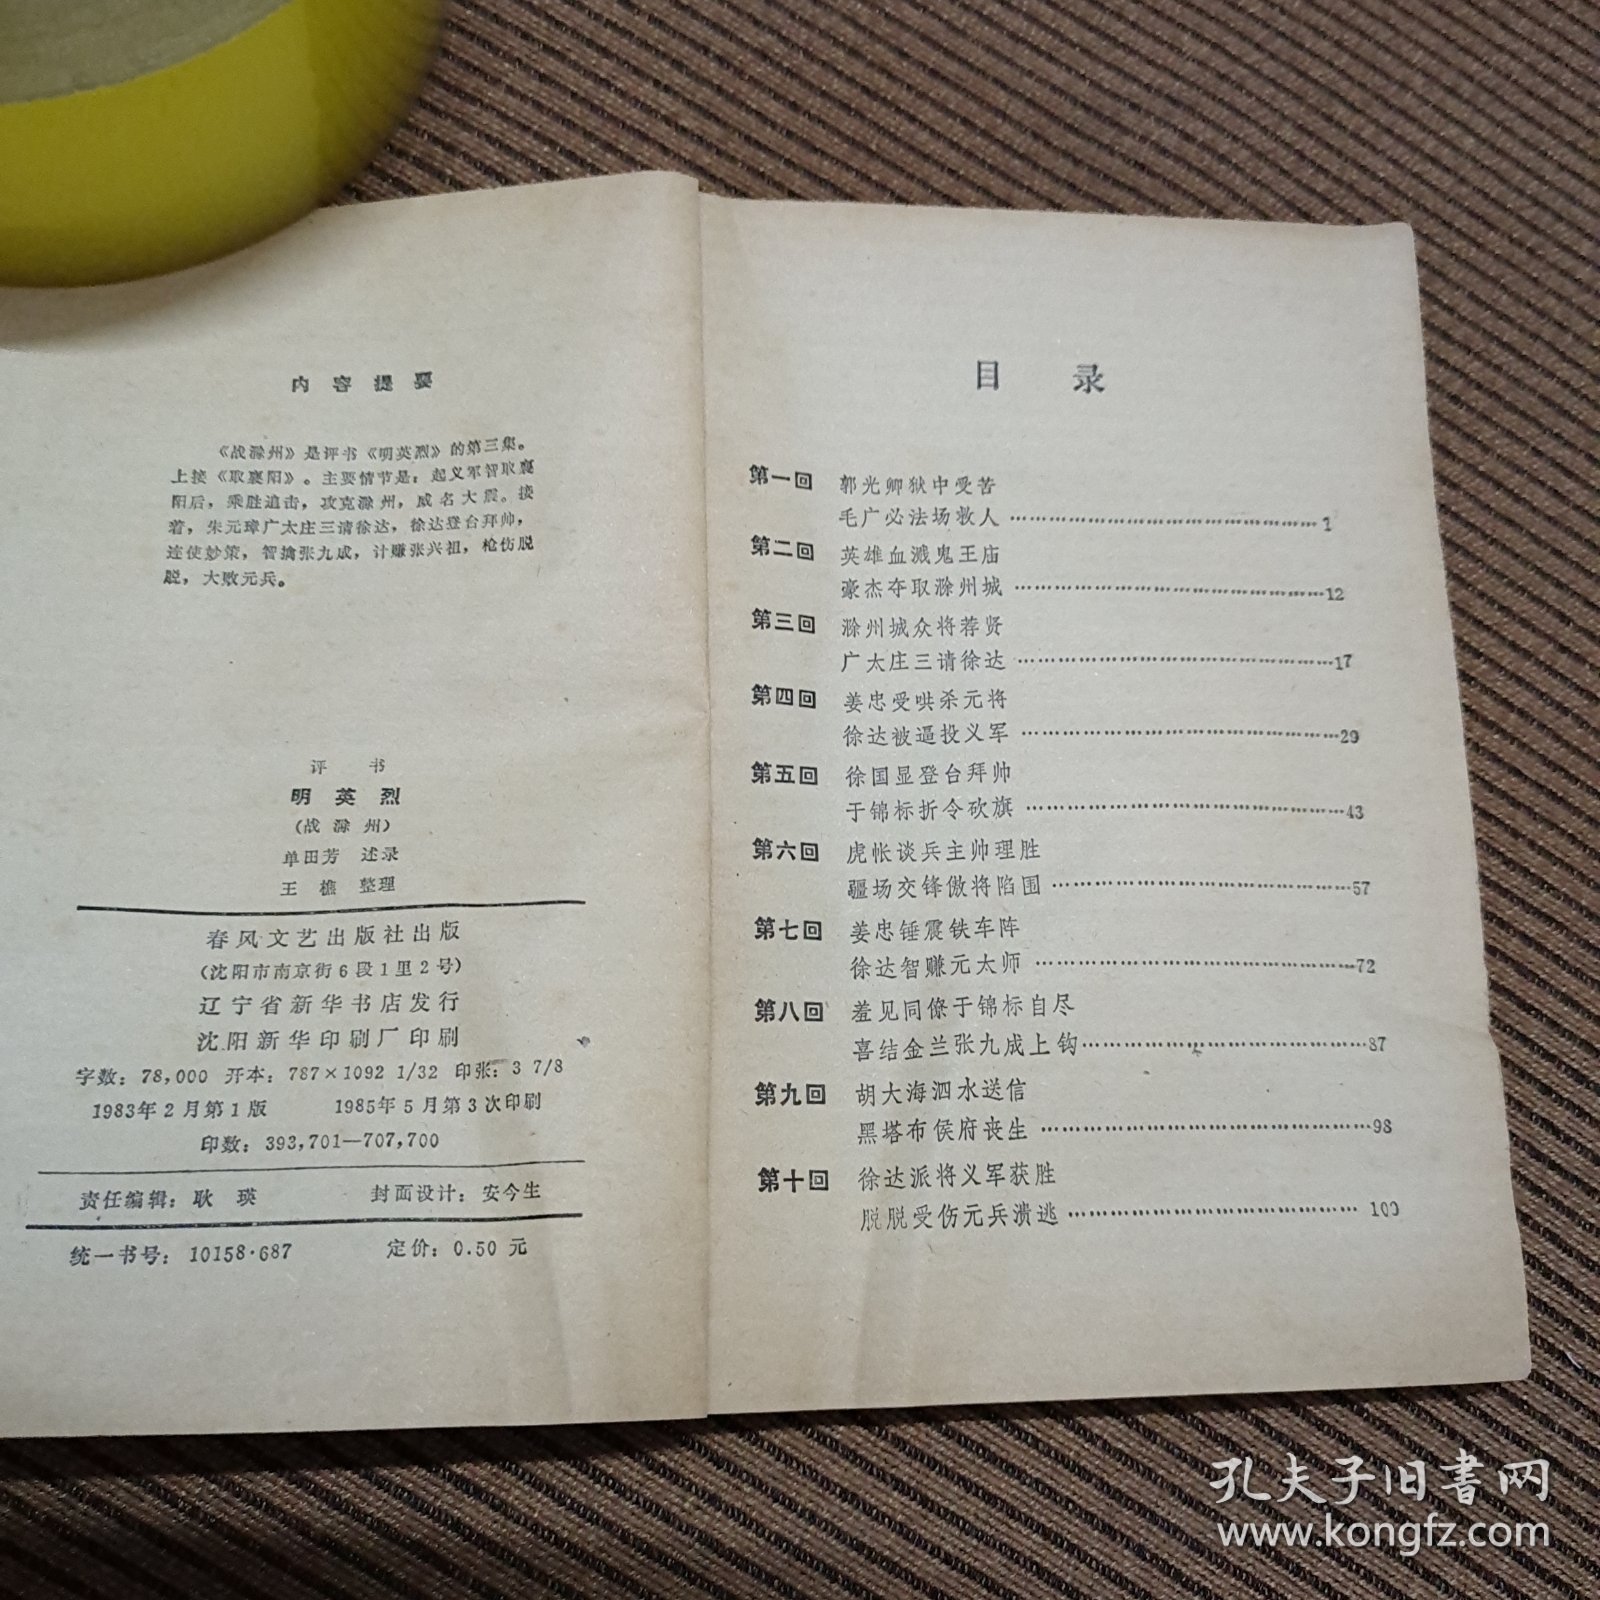 内容提要
《战滁州》是评书《明英烈》的第三集。
上接《取襄阳》。主要情节是：起义军智取襄
阳后，乘胜追击，攻克滁州，威名大震。接
着，朱元璋广太庄三请徐达，徐达登台拜帅，
连使妙策，智擒张九成，计赚张兴祖，枪伤脱
脱，大败元兵。
评书
明英烈
(战滁州)
单田芳 述录
王樵 整理
春风文艺出版社出版
(沈阳市南京街6段1里2号)
辽宁省新华书店发行
沈阳新华印刷厂印刷
字数：78,000 开本：787×1092 1/32 印张：3 7/8
1983年2月第1版 1985年5月第3次印刷
印数：393,701—707,700
责任编辑：耿 瑛 封面设计：安今生
统一书号：10158·687 定价：0.50 元
目录
第一回 郭光卿狱中受苦
毛广必法场救人……1
第二回 英雄血溅鬼王庙
豪杰夺取滁州城……12
第三回 滁州城众将荐贤
广太庄三请徐达……17
第四回 姜忠受哄杀元将
徐达被逼投义军……29
第五回 徐国显登台拜帅
于锦标折令砍旗……43
第六回 虎帐谈兵主帅理胜
疆场交锋傲将陷围……57
第七回 姜忠锤震铁车阵
徐达智赚元太师……72
第八回 羞见同僚于锦标自尽
喜结金兰张九成上钩……87
第九回 胡大海泗水送信
黑塔布侯府丧生……98
第十回 徐达派将义军获胜
脱脱受伤元兵溃逃……109
孔夫子旧书网
www.kongfz.com